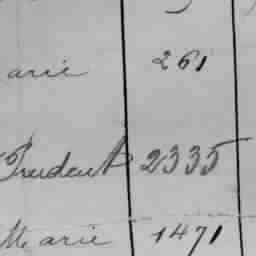 arie 261
Prudent 2335
Marie 1471